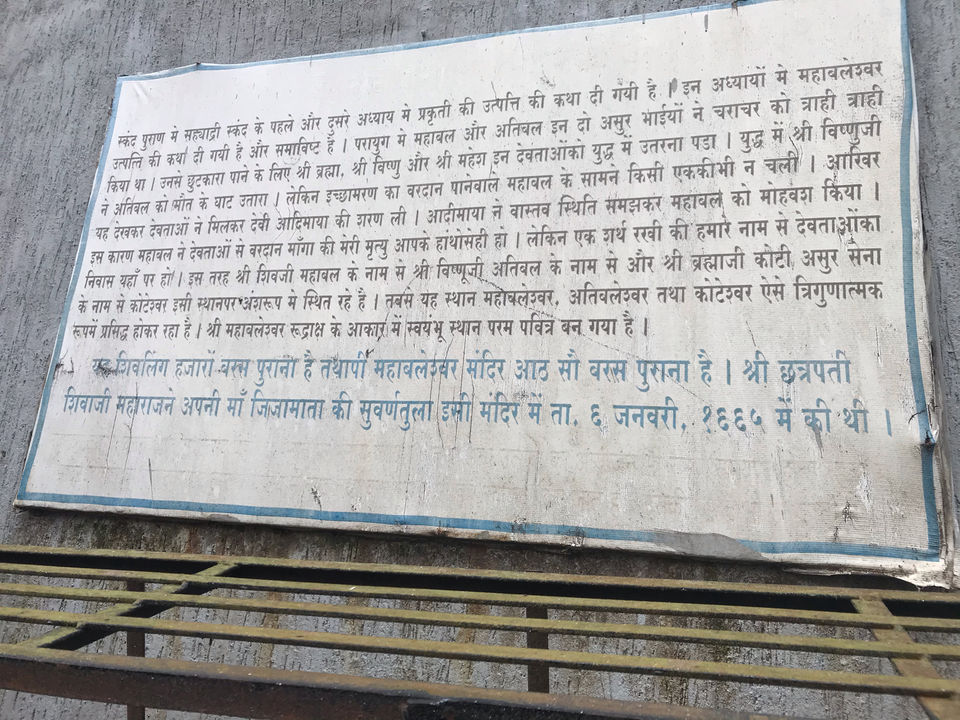 स्कंद पुराण मे सह्याद्री स्कंद के पहले और दुसरे अध्याय मे प्रकृती की उत्पत्ति की कथा दी गयी है । इन अध्यायों मे महाबलेश्वर
उत्पत्ति की कथा दी गयी है और समाविष्ट है । परायुग मे महाबल और अतिबल इन दो असुर भाईयों ने चराचर को त्राही त्राही
किया था । उनसे छुटकारा पाने के लिए श्री ब्रह्मा, श्री विष्णु और श्री महेश इन देवताओंको युद्ध में उतरना पडा । युद्ध में श्री विष्णुजी
ने अतिबल को मौत के घाट उतारा । लेकिन इच्छामरण का वरदान पानेवाले महाबल के सामन किसी एककीभी न चली । आखिर
यह देखकर देवताओं ने मिलकर देवी आदिमाया की शरण ली । आदीमाया ने वास्तव स्थिति समझकर महाबल को मोहवश किया ।
इस कारण महाबल ने देवताओं से वरदान माँगा की मेरी मृत्यु आपके हाथोसेही हो । लेकिन एक शर्थ रखी की हमारे नाम से देवताओंका
निवास यहाँ पर हो । इस तरह श्री शिवजी महाबल के नाम से श्री विष्णूजी अतिबल के नाम से और श्री ब्रह्माजी कोटी असुर सेना
के नाम से कोटेश्वर इसी स्थानपर अंशरूप मे स्थित रहे है । तबसे यह स्थान महाबलेश्वर, अतिबलेश्वर तथा कोटेश्वर ऐसे त्रिगुणात्मक
रूपमें प्रसिद्ध होकर रहा है । श्री महाबलेश्वर रूद्राक्ष के आकार में स्वयंभू स्थान परम पवित्र बन गया है ।
यह शिवलिंग हजारों वरस पुराना है तथापी महाबलेश्वर मंदिर आठ सौ वरस पुराना है । श्री छत्रपती
शिवाजी महाराजने अपनी माँ जिजामाता की सुवर्णतुला इसी मंदिर में ता. ६ जनवरी, १६६५ मे की थी ।